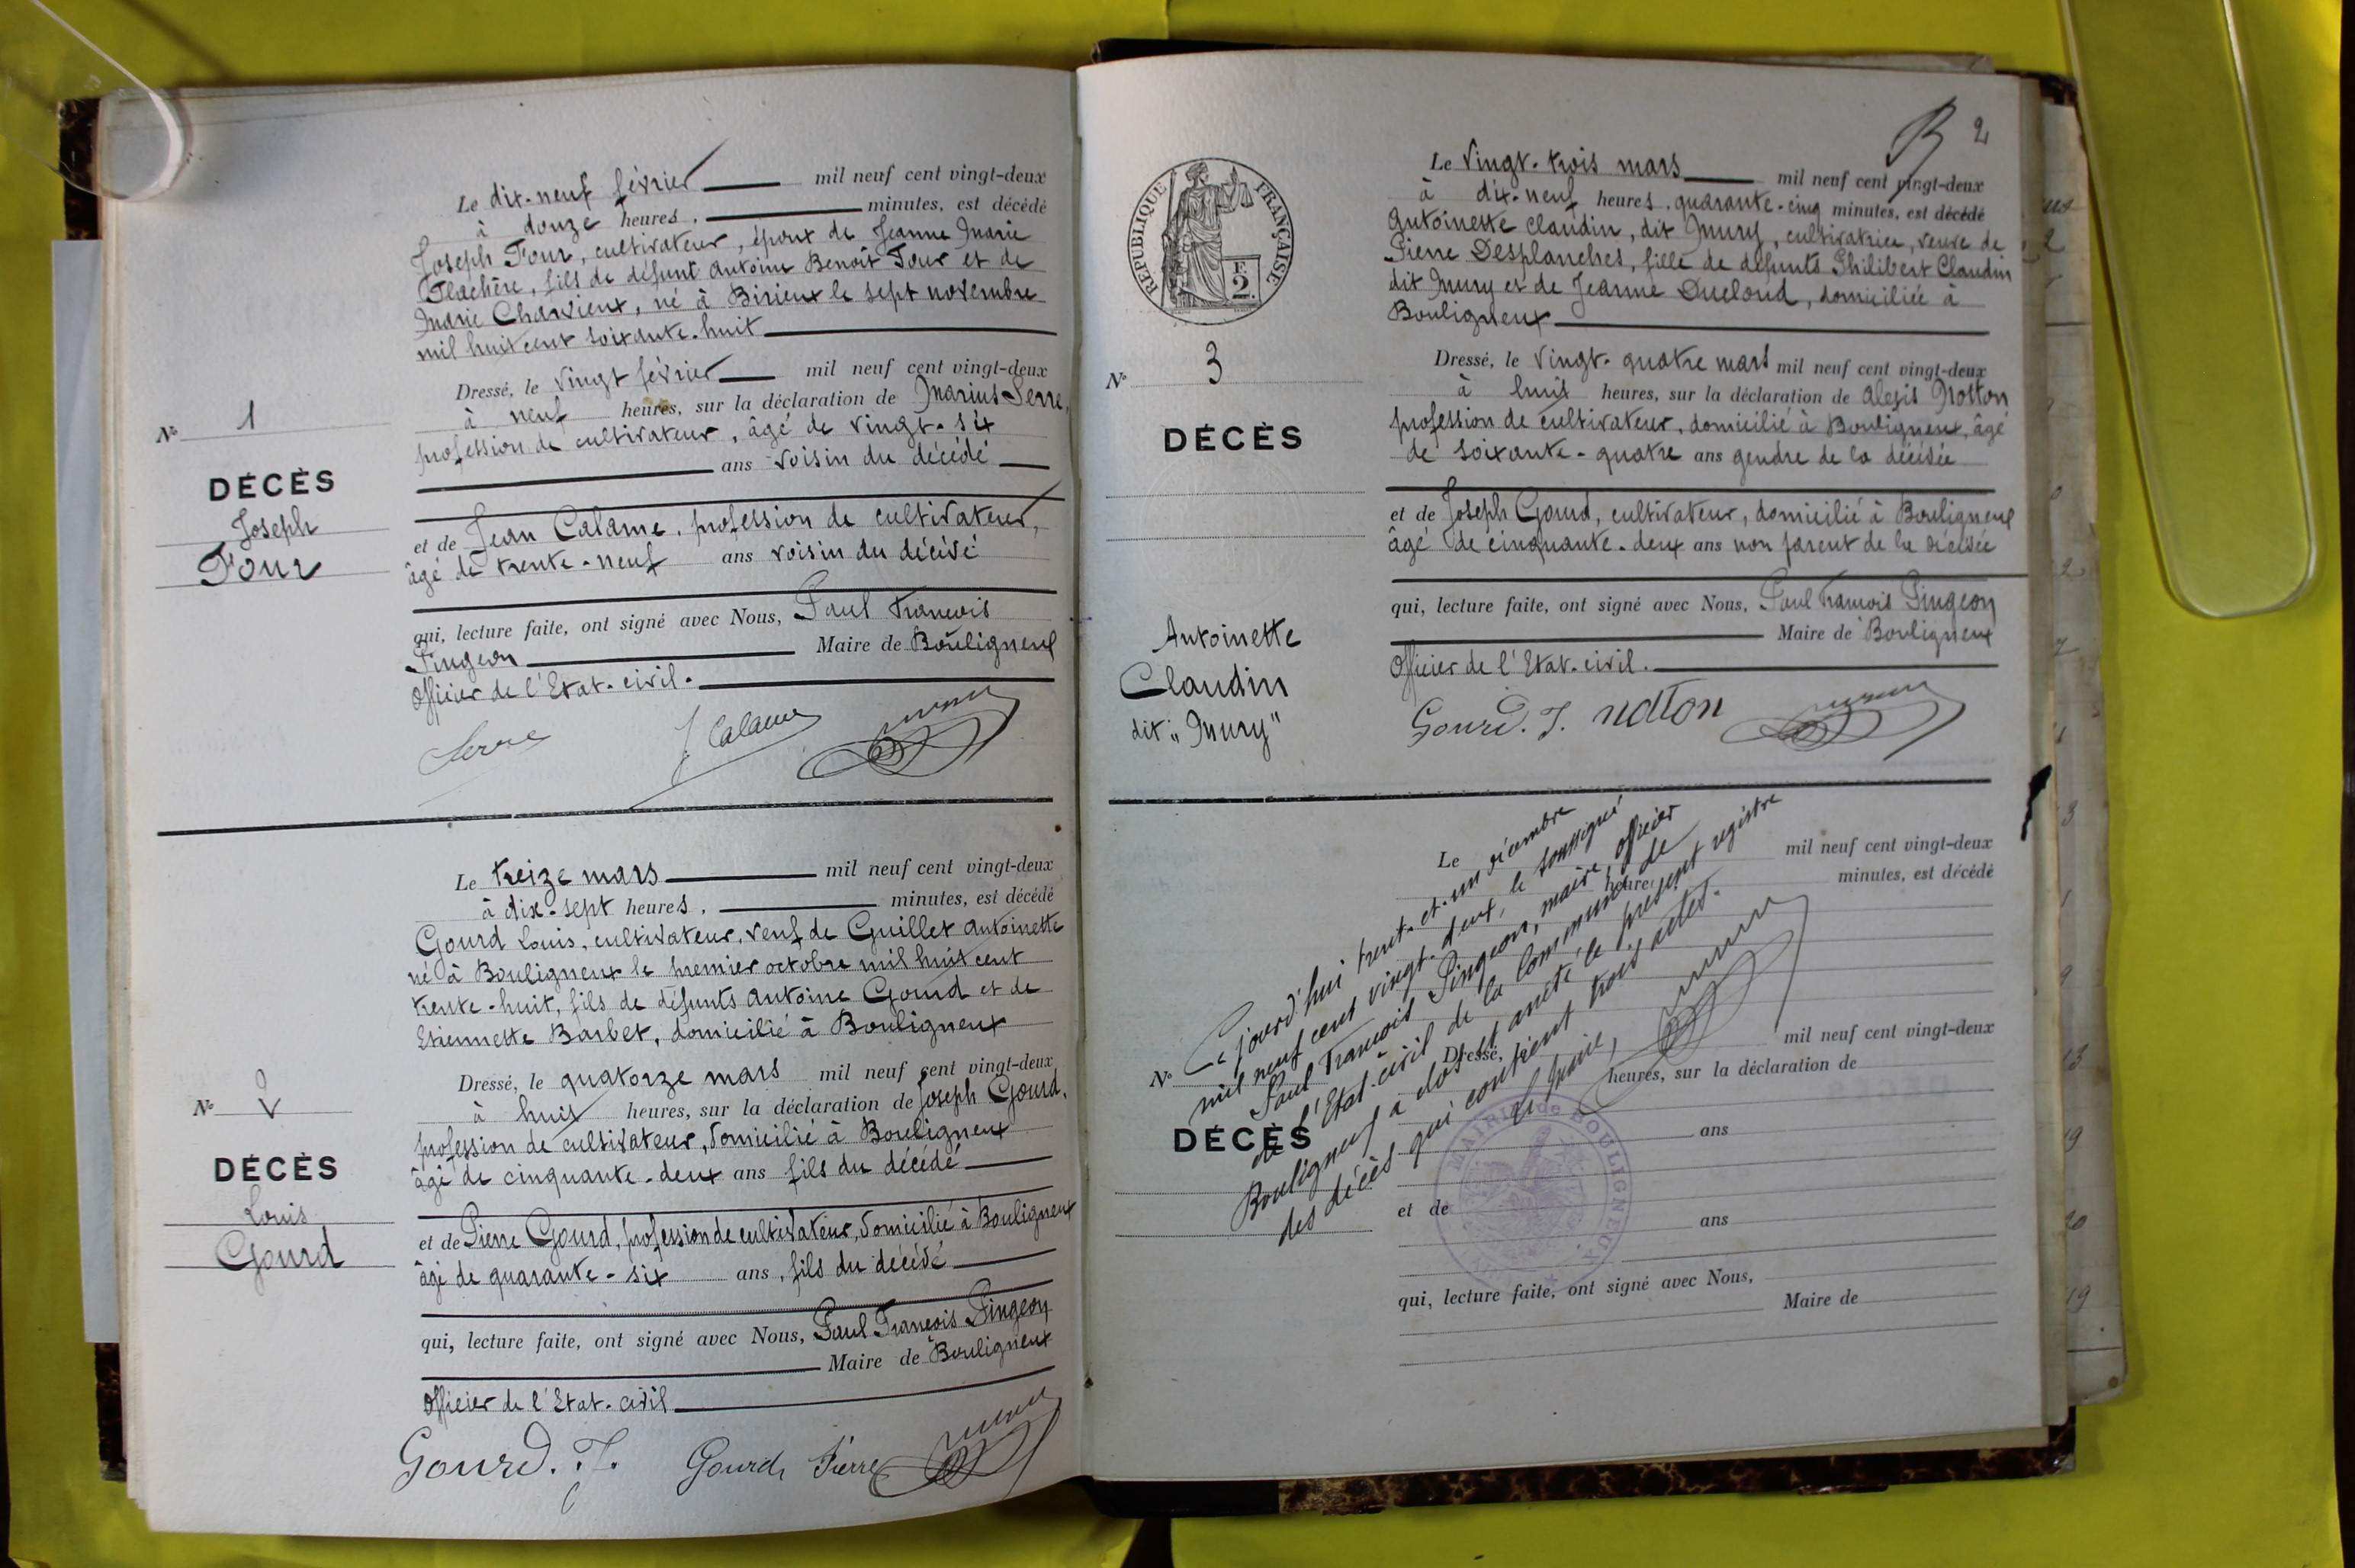 Le dix-neuf février mil neuf cent vingt-deux
à douze heures, minutes, est décédé
Joseph Four, cultivateur, époux de Jeanne Marie
Flachère, fils de défunt Antoine Benoît Four et de
Marie Charvieux, né à Birieux le sept novembre
mil huit cent soixante-huit
Dressé, le vingt février mil neuf cent vingt-deux
à neuf heures, sur la déclaration de Marius Serre,
profession de cultivateur, âgé de vingt-six
ans voisin du décédé
et de Jean Calame, profession de cultivateur,
âgé de trente-neuf ans voisin du décédé
qui, lecture faite, ont signé avec Nous, Paul François
Pingeon Maire de Bouligneux
Officier de l'Etat-civil.
Serre J Calame
N° 1
DÉCÈS
Joseph
Four
Le treize mars mil neuf cent vingt-deux
à dix-sept heures, minutes, est décédé
Gourd Louis, cultivateur, veuf de Guillet Antoinette
né à Bouligneux le premier octobre mil huit cent
trente-huit, fils de défunts Antoine Gourd et de
Etiennette Barbet, domicilié à Bouligneux
Dressé, le quatorze mars mil neuf cent vingt-deux
à huit heures, sur la déclaration de Joseph Gourd,
profession de cultivateur, domicilié à Bouligneux
âgé de cinquante-deux ans fils du décédé
et de Pierre Gourd, profession de cultivateur, domicilié à Bouligneux
âgé de quarante-six ans, fils du décédé
qui, lecture faite, ont signé avec Nous, Paul François Pingeon
Maire de Bouligneux
Officier de l'Etat-civil
Gourd. J. Gourd Pierre
N° 2
DÉCÈS
Louis
Gourd
2
RÉPUBLIQUE FRANÇAISE
F.
2.
Le vingt-trois mars mil neuf cent vingt-deux
à dix-neuf heures, quarante-cinq minutes, est décédé
Antoinette Claudin, dit Mury, cultivatrice, veuve de
Pierre Desplanches, fille de défunts Philibert Claudin
dit Mury et de Jeanne Ducloud, domiciliée à
Bouligneux
Dressé, le vingt-quatre mars mil neuf cent vingt-deux
à huit heures, sur la déclaration de Alexis Notton
profession de cultivateur, domicilié à Bouligneux, âgé
de soixante-quatre ans gendre de la décédée
et de Joseph Gourd, cultivateur, domicilié à Bouligneux
âgé de cinquante-deux ans non parent de la décédée
qui, lecture faite, ont signé avec Nous, Paul François Pingeon
Maire de Bouligneux
Officier de l'Etat-civil.
Gourd. J. notton
N° 3
DÉCÈS
Antoinette
Claudin
dit "Mury"
Le mil neuf cent vingt-deux
heure minutes, est décédé
Dressé, mil neuf cent vingt-deux
heures, sur la déclaration de
ans
et de
ans
qui, lecture faite, ont signé avec Nous,
Maire de
N°
DÉCÈS
Ce jourd'hui trent-et-un décembre
mil neuf cent vingt-deux, le soussigné
Paul François Pingeon, maire, officier
de l'Etat-civil de la Commune de
Bouligneux a clos et arrêté le présent registre
des décès qui contient trois actes.
Le Maire,
MAIRIE de BOULIGNEUX